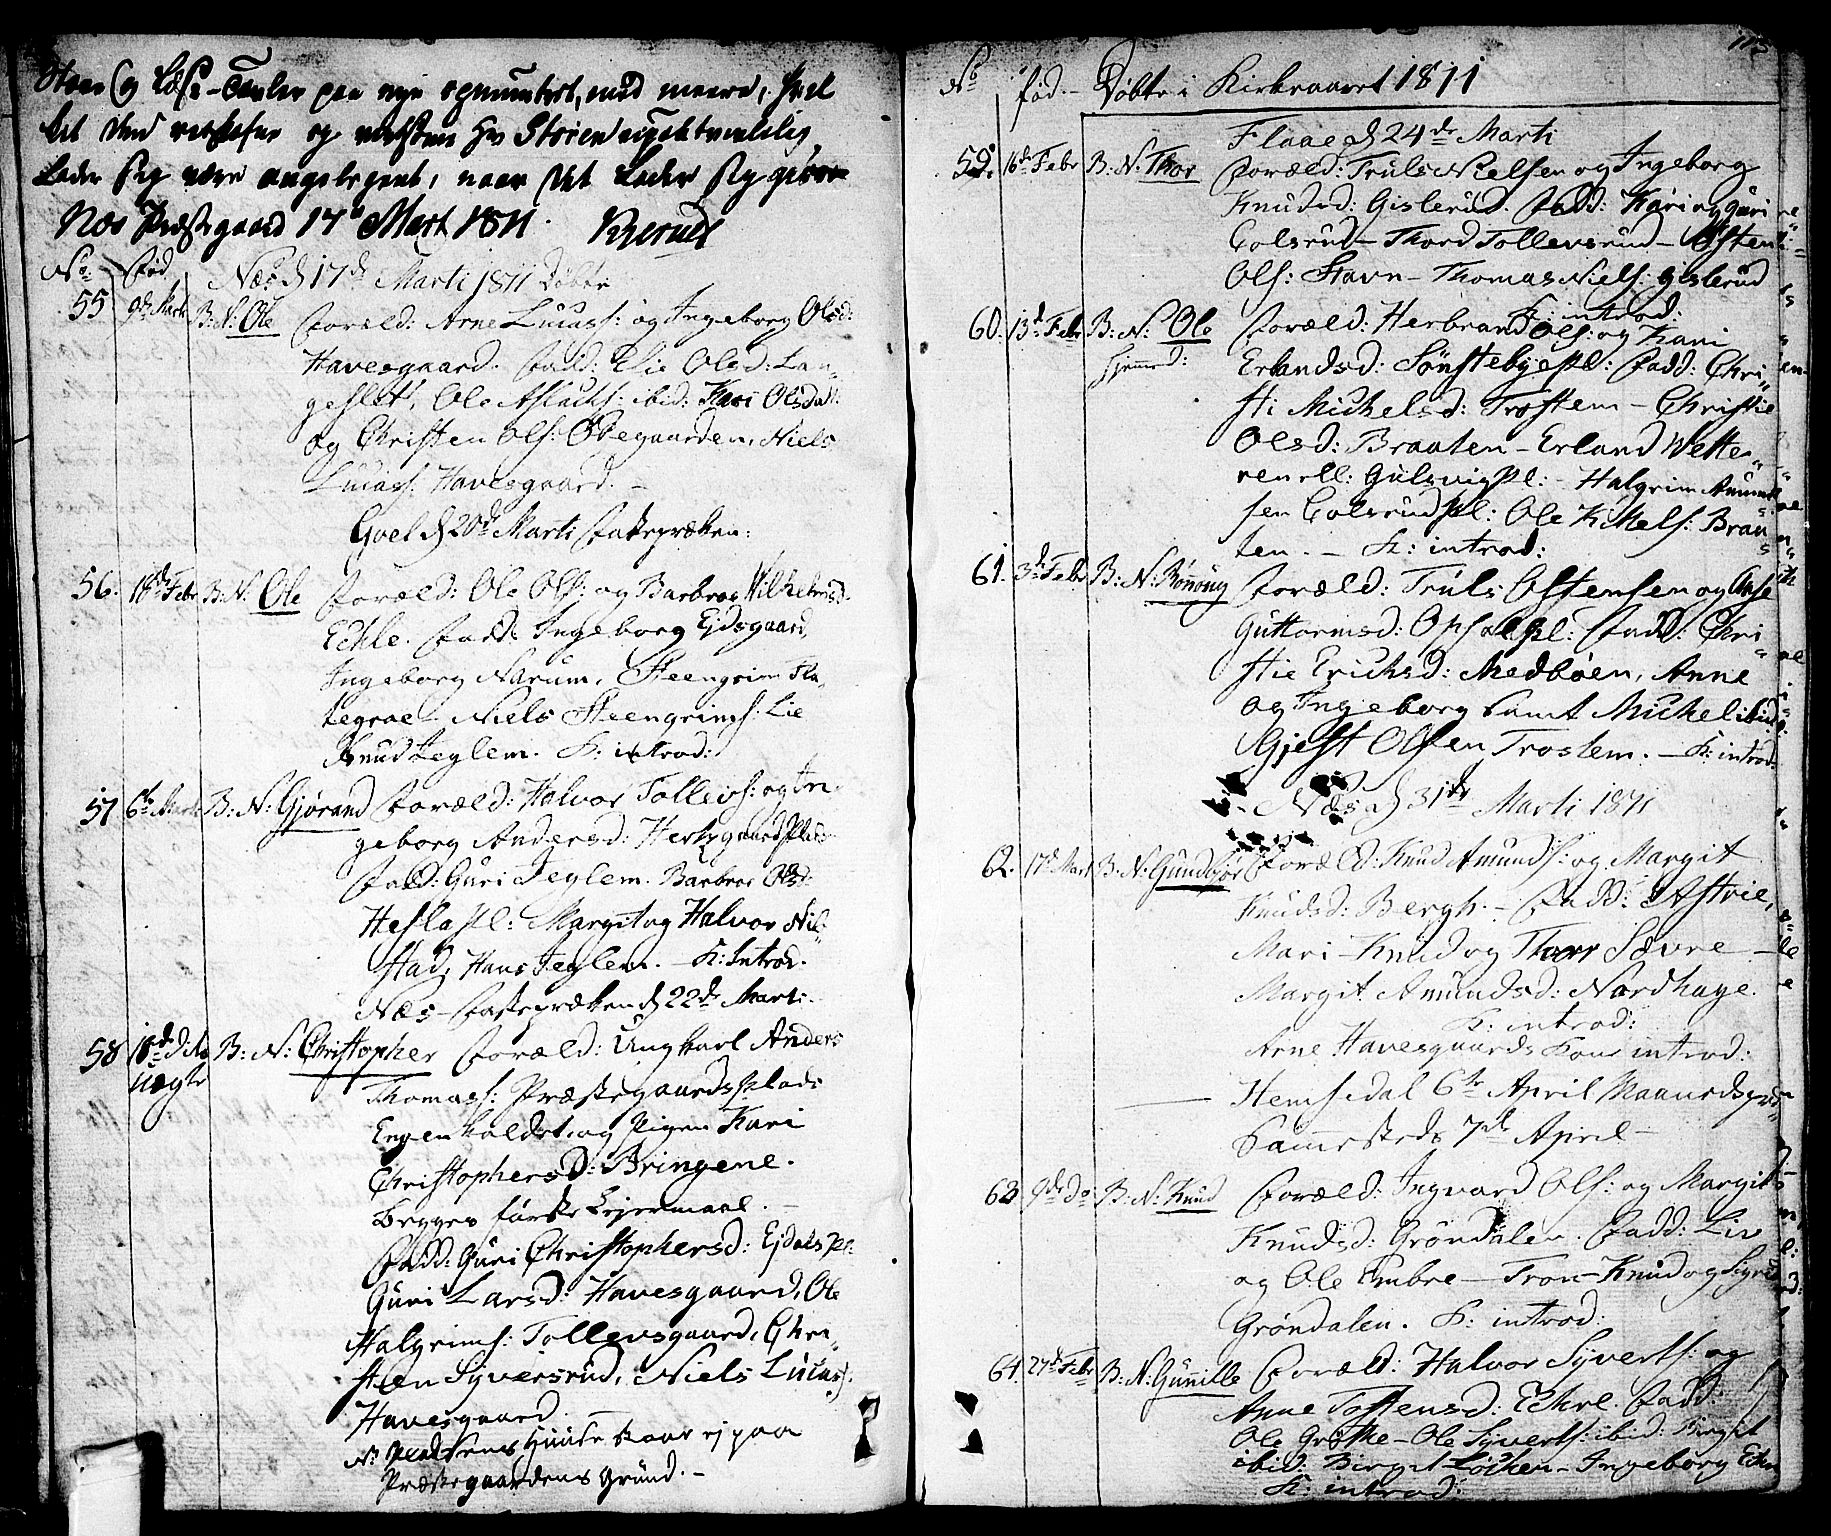 og Læse-Tavler paa nye opmuntret, med meere, hvil
ket
lader sig være angelegent, naar det lader sig giøre
Næs Præstegaard 14de Mart 1811.
No. Fød. Næs d 17de Marti 1811 Døbte
55 9de Marti B: N: Ole Foræld: Arne Lucass: og Ingeborg Olsd:
Havesgaard. Fadd: Elie Olsd: Lan-
geslet, Ole Aslachs: ibid: Kari Olsdat:
og Christen Ols: Ødegaarden, Niels
Lucass: Havesgaard. –
Goel d 20de Marti Fasteprækken:
56. 18de Febr B. N: Ole Foræld: Ole Ols: og Barbroe Wilhelmsd:
Echle. Fadd: Ingeborg Ejdsgaard,
Ingeborg Narum, Steengrim Fla-
tegrae. Niels Steengrims: Lie
Knud Jeglem. K: introd:
57 6te Marti B: N: Gjørand Foræld: Halvor Tollevs: og In-
geborg Andersd: Hertzgaard Plads
Fadd: Guri Jeglem. Barbroe Olsd:
Hesla Pl: Margit og Halvor Nil-
stad, Hans Jeglem. – K: Introd.
Næs – Fasteprækken d 22de Marti.
58 18de Dito B: N: Christopher Foræld: Ungkarl Anders
uægte Thomass: Præstegaardsplads
Engenholdet, og Pigen Kari
Christophersd: Bringene.
Begges første Lejermaal. –
Fadd: Guri Christophersd: Ejdals Pl:
Guri Larsd: Havesgaard, Ole
Halgrims: Tollevsgaard, Chri-
sten Syversrud, Niels Lucas:
Havesgaard.
staar ej paa
Præstegaardens Grund. –
No. fød. – Døbte i Kirkeaaret 1811
Flaae d 24de Marti
59. 16de Febr B: N: Thor Foræld: Truls Nielsen og Ingeborg
Knudsd: Gislerud. Fadd: Kari og Guri
Colsrud – Thord Tollevsrud – Østen
Ols: Stavn – Thomas Niels: Gislerud
K: introd:
60. 13de Febr B: N: Ole Foræld: Herbrand Ols: og Kari
hjemed: Erlandsd: Sønstebye Pl: Fadd: Chri-
sti Michelsd: Trostem – Christie
Olsd: Braaten – Erland Wette-
renell: Gulsvig Pl: – Halgrim Amund
sen Colsrud Pl: Ole Mikels: Braa-
ten. – K: introd:
61. 3de Febr B: N: Rønnoug Foræld: Truls Ostensen og Anse
Guttormsd: Opsal Pl: Fadd: Chri-
stie Erichsd: Medbøen, Anne
og Ingeborg samt Michel ibid:
Gjest Olsen Trostem. – K: introd:
Næs d 31te Marti 1811
62. 17de Mart B. N: Gundbjør Foræld: Knud Amunds: og Margit
Knudsd: Bergh. – Fadd: Astrie,
Mari – Knud og Thor Sævre –
Margit Amundsd: Nordhage.
K: introd:
Arne Havesgaards Kone introd:
Hemsedal 6te April
Sammesteds 7de April –
63 9de Do B: N: Knud Foræld: Ingvard Ols: og Margit
Knudsd: Grøndalen. Fadd: Liv
og Ole Embre – Tron – Knud og Sigrid
Grøndalen. K: introd:
64. 27de Febr B: N: Gunille Foræld: Halvor Syverts: og
Anne Tostensd: Echre. Fadd:
Ole Grøthe – Ole Syverts: ibid: Birgit
ibid. Birgit Løchen – Ingeborg Echre
K: introd: